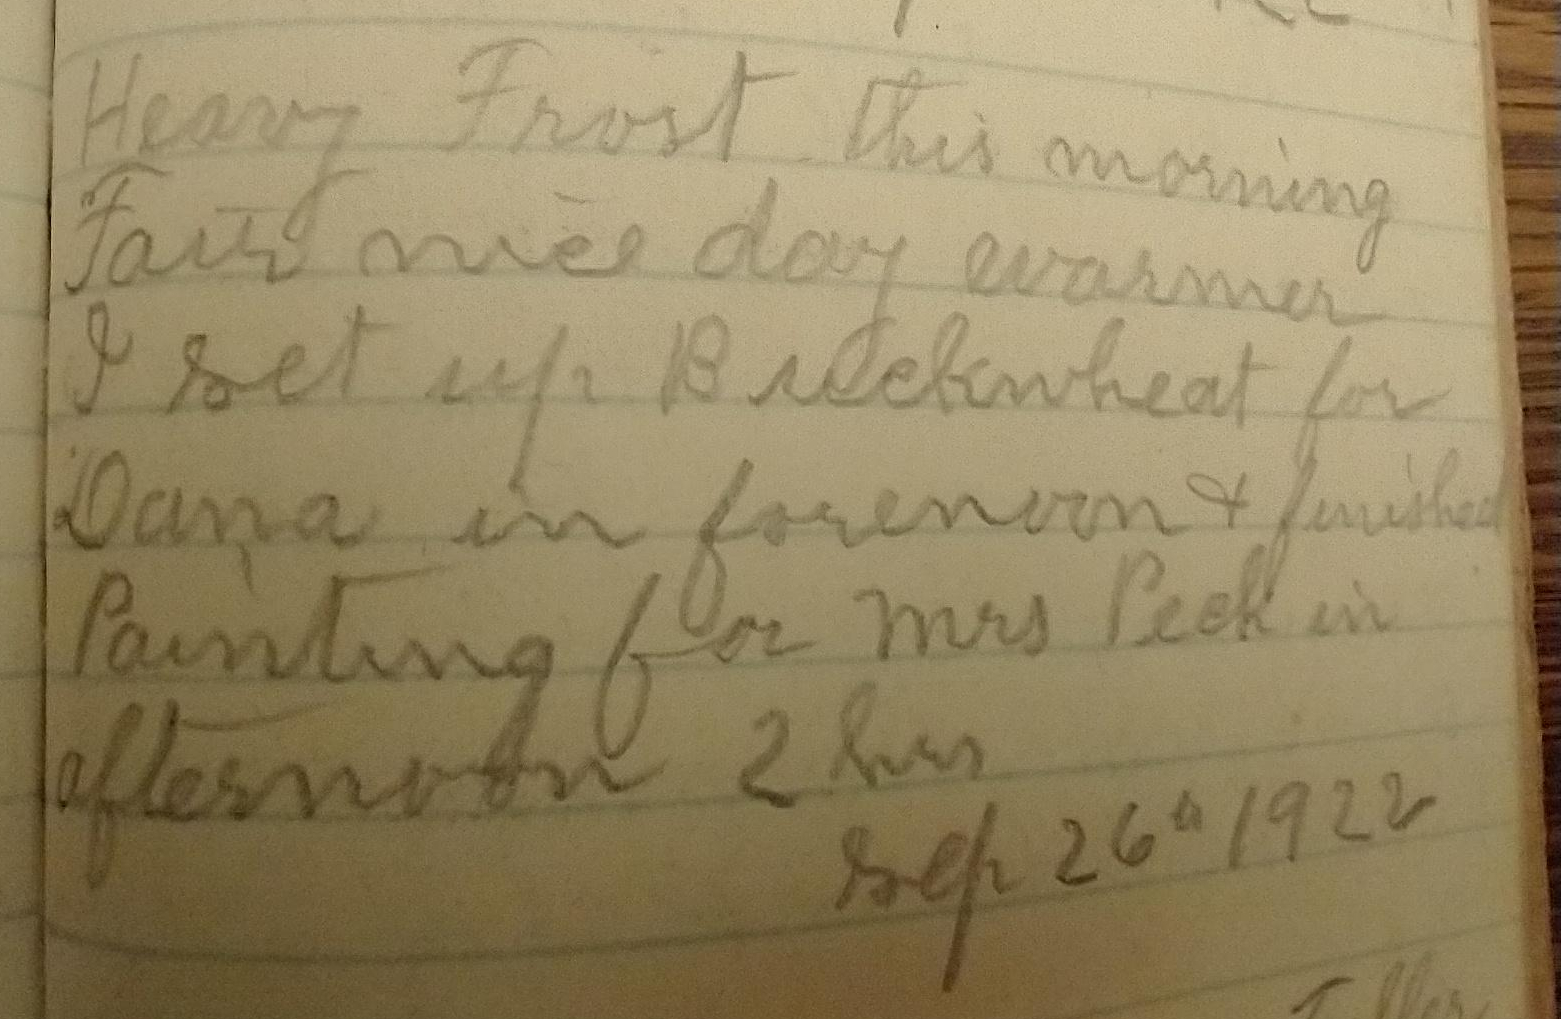 Heavy Frost this morning
Fair nice day warmer
I set up Buckwheat for
Dana in forenoon & finished
Painting for Mrs Peck in
afternoon 2 hrs
Sep 26th 1922